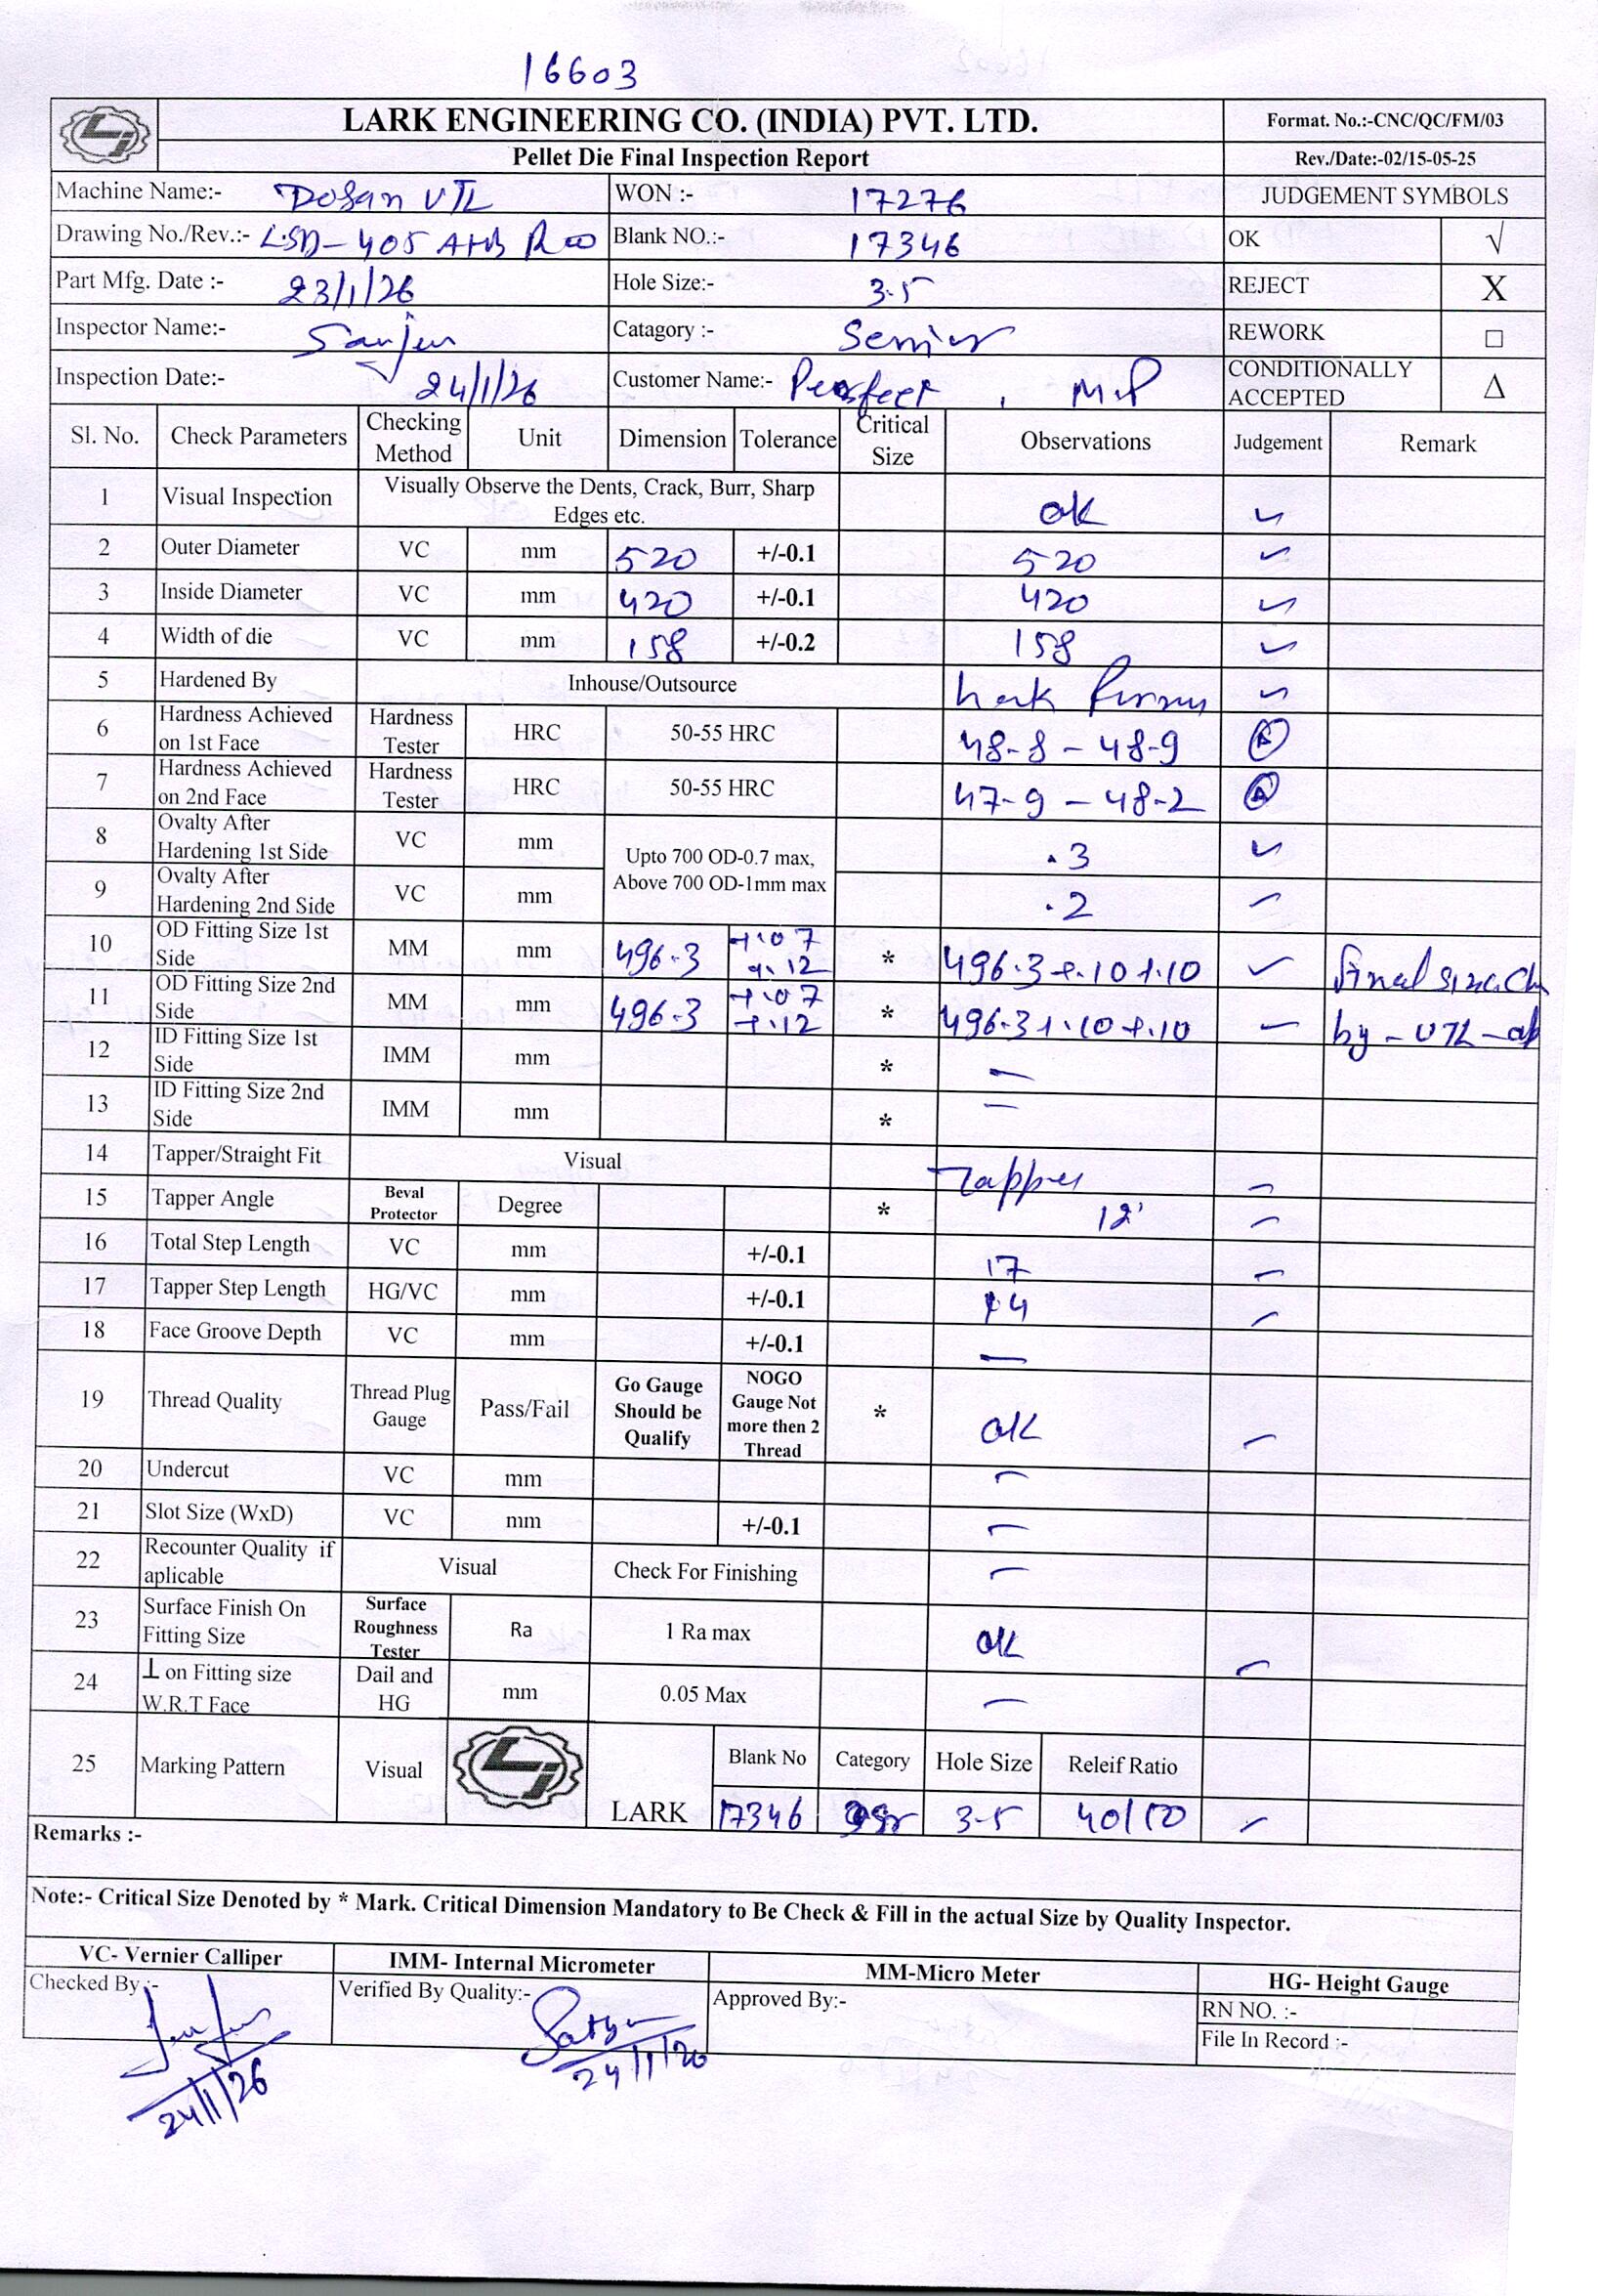 16603
LARK ENGINEERING CO. (INDIA) PVT. LTD. Format. No.:-CNC/QC/FM/03
Pellet Die Final Inspection Report Rev./Date:-02/15-05-25
Machine Name:- Dosan VTL WON :- 17276 JUDGEMENT SYMBOLS
Drawing No./Rev.:- LSD-405 Blank NO.:- 17346 OK √
Part Mfg. Date :- 23/1/26 Hole Size:- 3.5 REJECT X
Inspector Name:- Catagory :- Senior REWORK □
Inspection Date:- 24/1/26 Customer Name:- Perfect , M.P CONDITIONALLY ACCEPTED Δ
Sl. No. Check Parameters Checking Method Unit Dimension Tolerance Critical Size Observations Judgement Remark
1 Visual Inspection Visually Observe the Dents, Crack, Burr, Sharp Edges etc. ok ✓
2 Outer Diameter VC mm 520 +/-0.1 520 ✓
3 Inside Diameter VC mm 420 +/-0.1 420 ✓
4 Width of die VC mm 158 +/-0.2 158 ✓
5 Hardened By Inhouse/Outsource ✓
6 Hardness Achieved on 1st Face Hardness Tester HRC 50-55 HRC 48-8 - 48-9
7 Hardness Achieved on 2nd Face Hardness Tester HRC 50-55 HRC 47-9 - 48-2
8 Ovalty After Hardening 1st Side VC mm Upto 700 OD-0.7 max, Above 700 OD-1mm max .3 ✓
9 Ovalty After Hardening 2nd Side VC mm .2 ✓
10 OD Fitting Size 1st Side MM mm 496.3 +.07 +.12 * 496.3 +.10 +.10 ✓ final size
11 OD Fitting Size 2nd Side MM mm 496.3 +.07 +.12 * 496.3 +.10 +.10 ✓ by - VTL - ok
12 ID Fitting Size 1st Side IMM mm * —
13 ID Fitting Size 2nd Side IMM mm * —
14 Tapper/Straight Fit Visual Tapper ✓
15 Tapper Angle Beval Protector Degree * 12' ✓
16 Total Step Length VC mm +/-0.1 17 ✓
17 Tapper Step Length HG/VC mm +/-0.1 14 ✓
18 Face Groove Depth VC mm +/-0.1 —
19 Thread Quality Thread Plug Gauge Pass/Fail Go Gauge Should be Qualify NOGO Gauge Not more then 2 Thread * ok ✓
20 Undercut VC mm —
21 Slot Size (WxD) VC mm +/-0.1 —
22 Recounter Quality if aplicable Visual Check For Finishing —
23 Surface Finish On Fitting Size Surface Roughness Tester Ra 1 Ra max ok ✓
24 ⊥ on Fitting size W.R.T Face Dail and HG mm 0.05 Max —
25 Marking Pattern Visual LARK Blank No Category Hole Size Releif Ratio
17346 3-5 40/50 ✓
Remarks :-
Note:- Critical Size Denoted by * Mark. Critical Dimension Mandatory to Be Check & Fill in the actual Size by Quality Inspector.
VC- Vernier Calliper IMM- Internal Micrometer MM-Micro Meter HG- Height Gauge
Checked By :- Verified By Quality:- Approved By:- RN NO. :-
File In Record :-
24/1/26 24/1/26